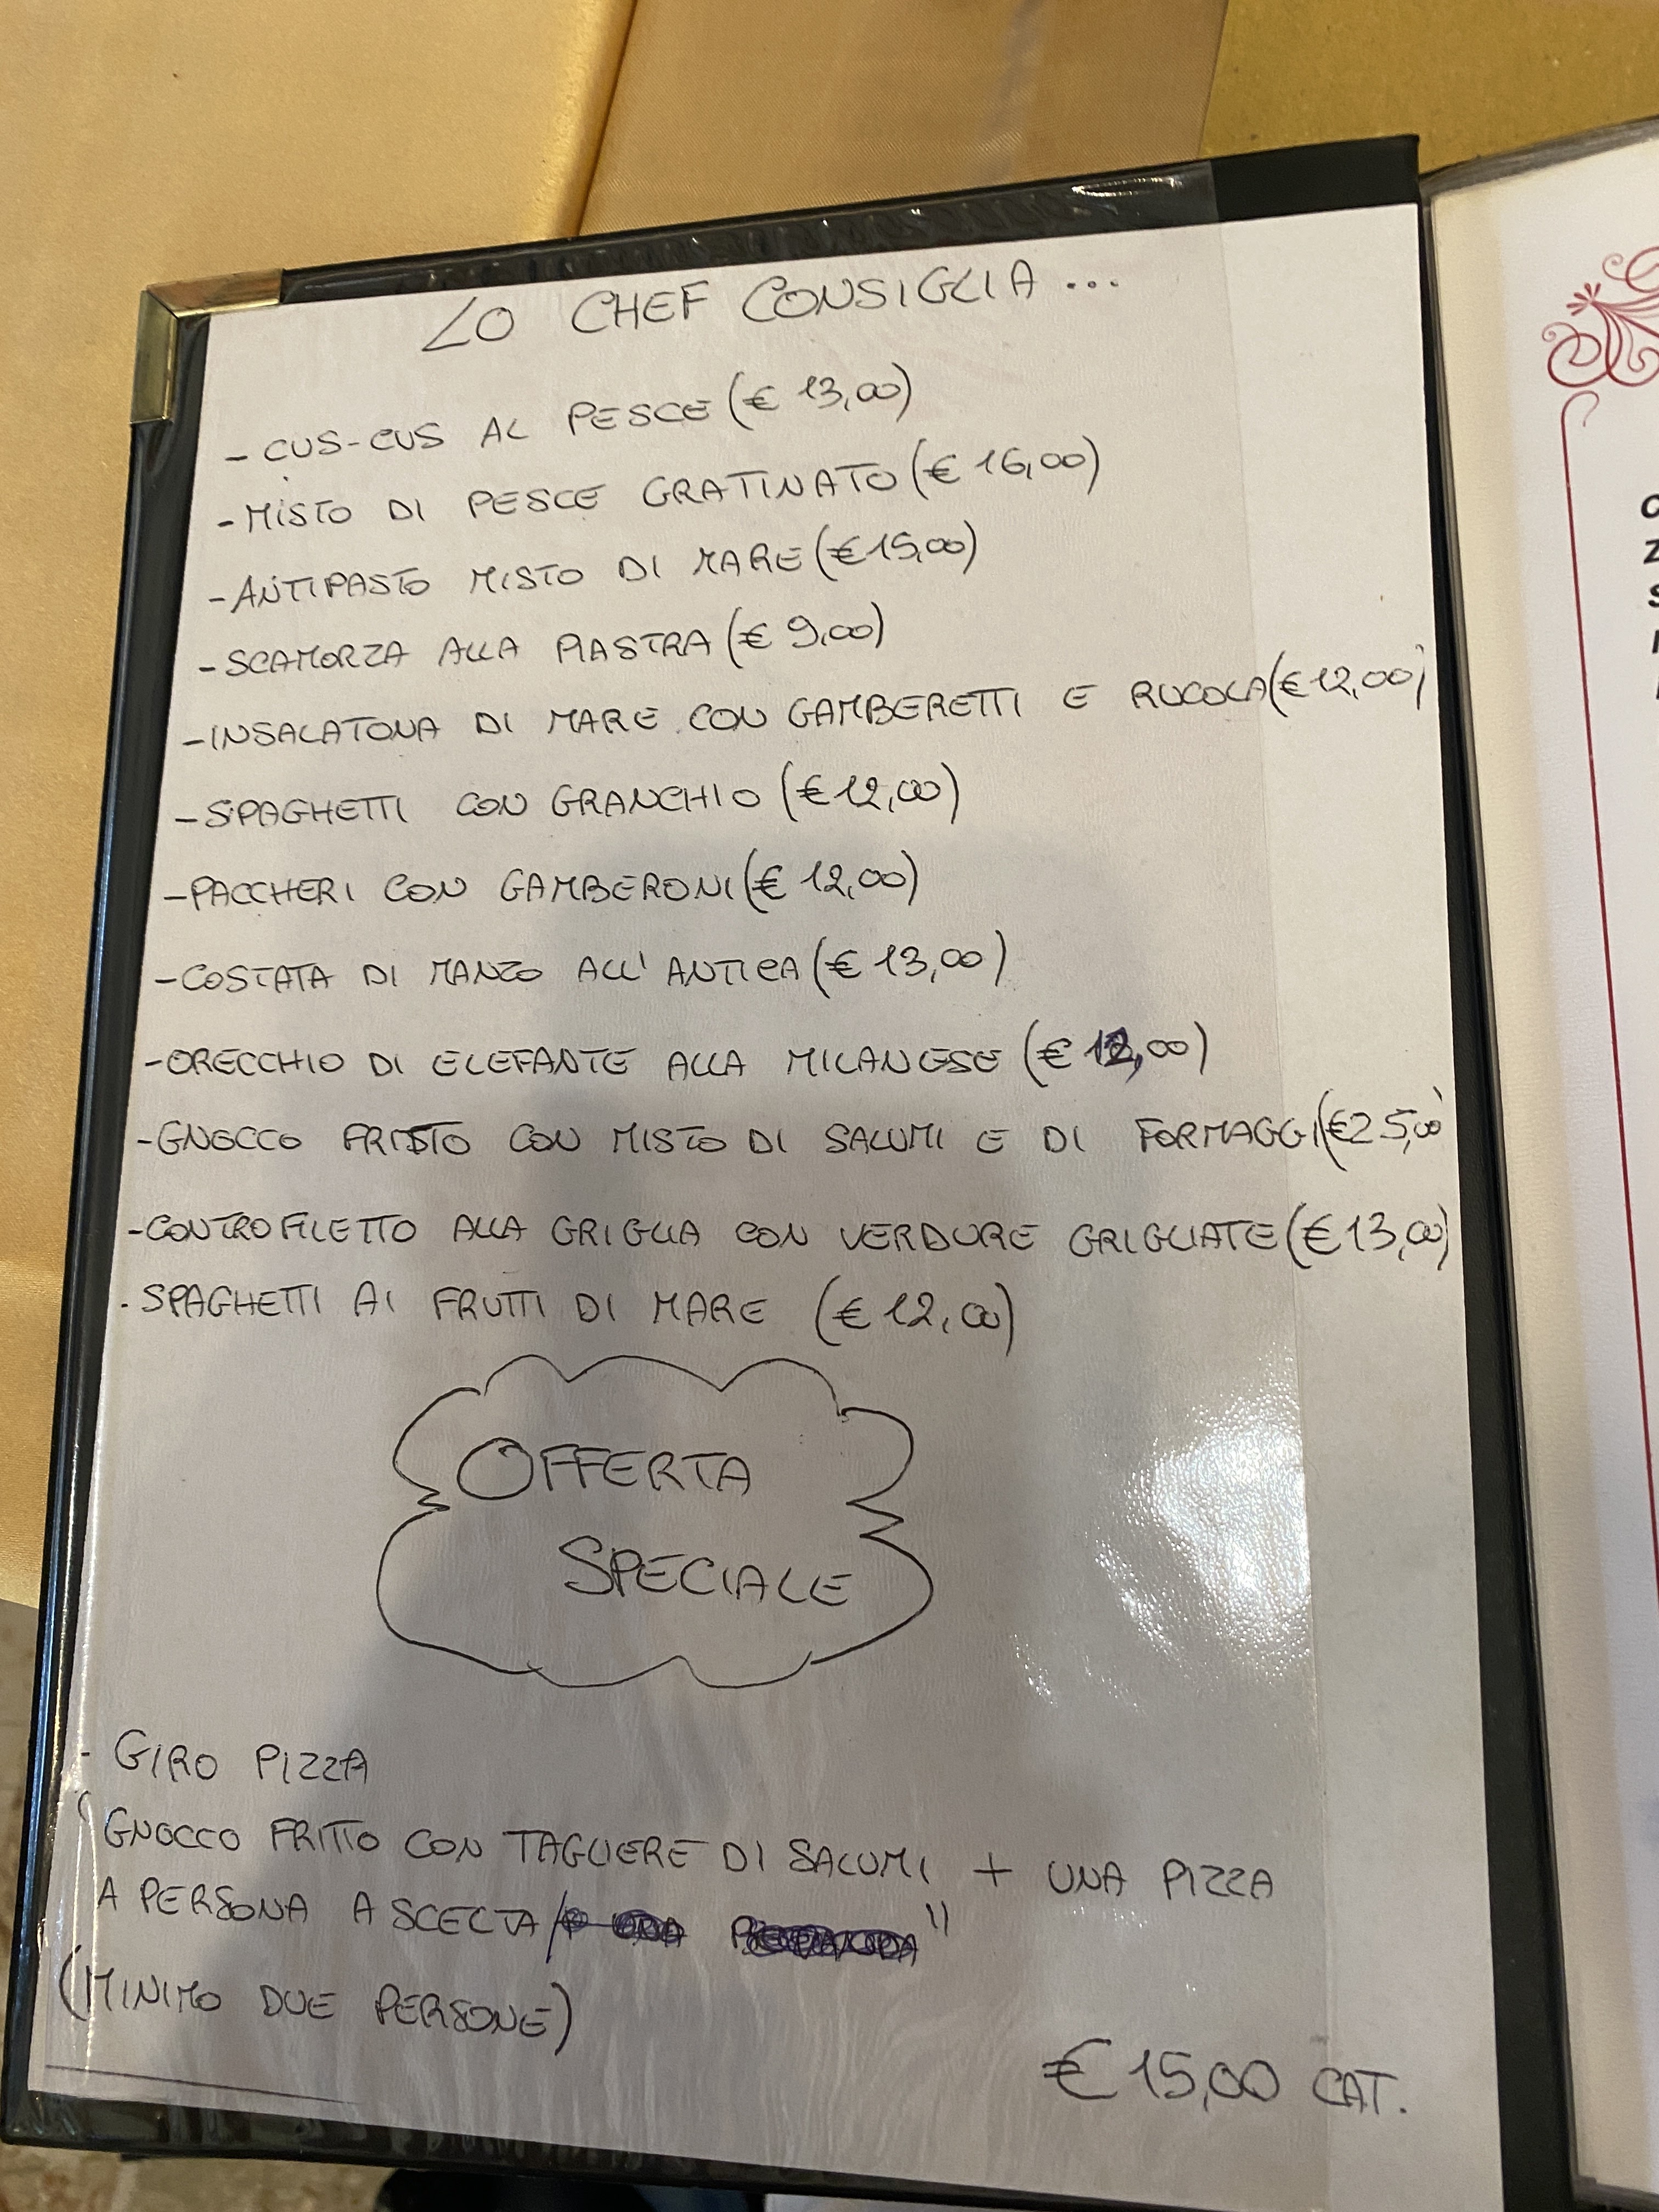 LO CHEF CONSIGLIA...
- CUS-CUS AL PESCE (€ 13,00)
- MISTO DI PESCE GRATINATO (€ 16,00)
- ANTIPASTO MISTO DI MARE (€ 15,00)
- SCAMORZA ALLA PIASTRA (€ 9,00)
- INSALATONA DI MARE CON GAMBERETTI E RUCOLA (€ 12,00)
- SPAGHETTI CON GRANCHIO (€ 12,00)
- PACCHERI CON GAMBERONI (€ 12,00)
- COSTATA DI MANZO ALL'ANTICA (€ 13,00)
- ORECCHIO DI ELEFANTE ALLA MILANESE (€ 12,00)
- GNOCCO FRITTO CON MISTO DI SALUMI E DI FORMAGGI (€25,00)
- CONTROFILETTO ALLA GRIGLIA CON VERDURE GRIGLIATE (€ 13,00)
. SPAGHETTI AI FRUTTI DI MARE (€ 12,00)
OFFERTA
SPECIALE
- GIRO PIZZA
" GNOCCO FRITTO CON TAGLIERE DI SALUMI + UNA PIZZA
A PERSONA A SCELTA "
(MINIMO DUE PERSONE)
€ 15,00 CAT.